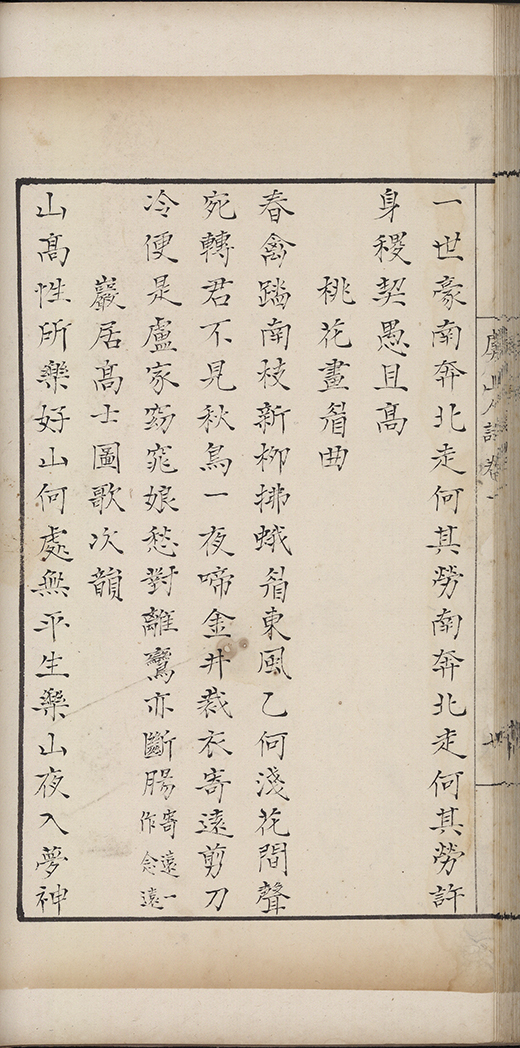 一世豪南奔北走何其勞南奔北走何其勞許
身稷契愚且高
桃花畫眉曲
春禽踏南枝新柳拂蛾眉東風乙何淺花間聲
宛轉君不見秋鳥一夜啼金井裁衣寄遠剪刀
冷便是盧家窈窕娘愁對離鸞亦斷腸寄遠一作念遠
巖居高士圖歌次韻
山高性所樂好山何處無平生樂山夜入夢神
山人詩卷一